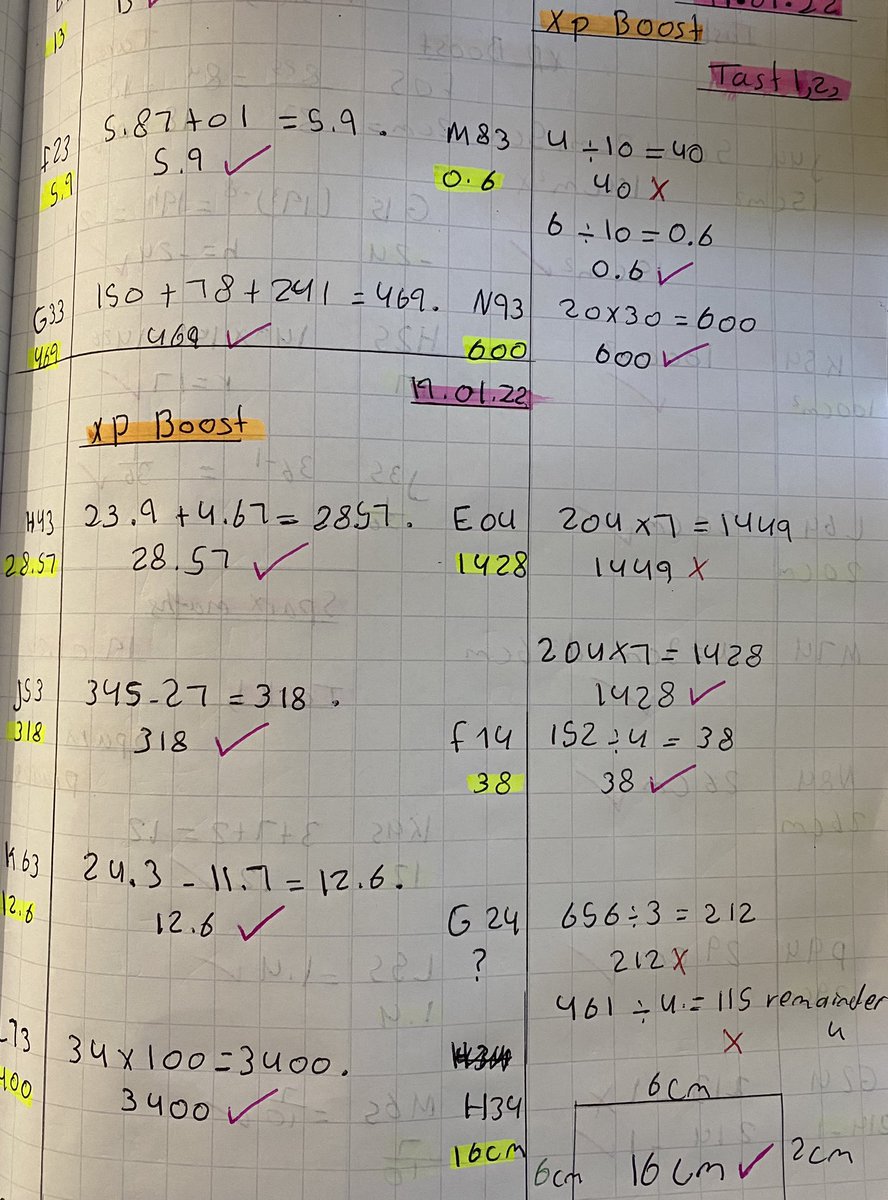 13
F23 5.87+01 = 5.9.
5.9 5.9 ✓
G33 150 + 78 + 241 = 469.
469 469 ✓
19.01.22
xp Boost
H43 23.9 + 4.67 = 2857.
28.57 28.57 ✓
J53 345-27 = 318.
318 318 ✓
K63 24.3 - 11.7 = 12.6.
12.6 12.6 ✓
L73 34 x 100 = 3400.
400 3400 ✓
xp Boost
Tast 1,2,
M83 4 ÷ 10 = 40
0.6 40 x
6 ÷ 10 = 0.6
0.6 ✓
N93 20 x 30 = 600
600 600 ✓
E04 204 x 7 = 1449
1428 1449 x
204 x 7 = 1428
1428 ✓
F14 152 ÷ 4 = 38
38 38 ✓
G24 656 ÷ 3 = 212
? 212 x
461 ÷ 4 = 115 remainder
x 4
H34
6cm
16cm 6cm 16cm ✓ 2cm